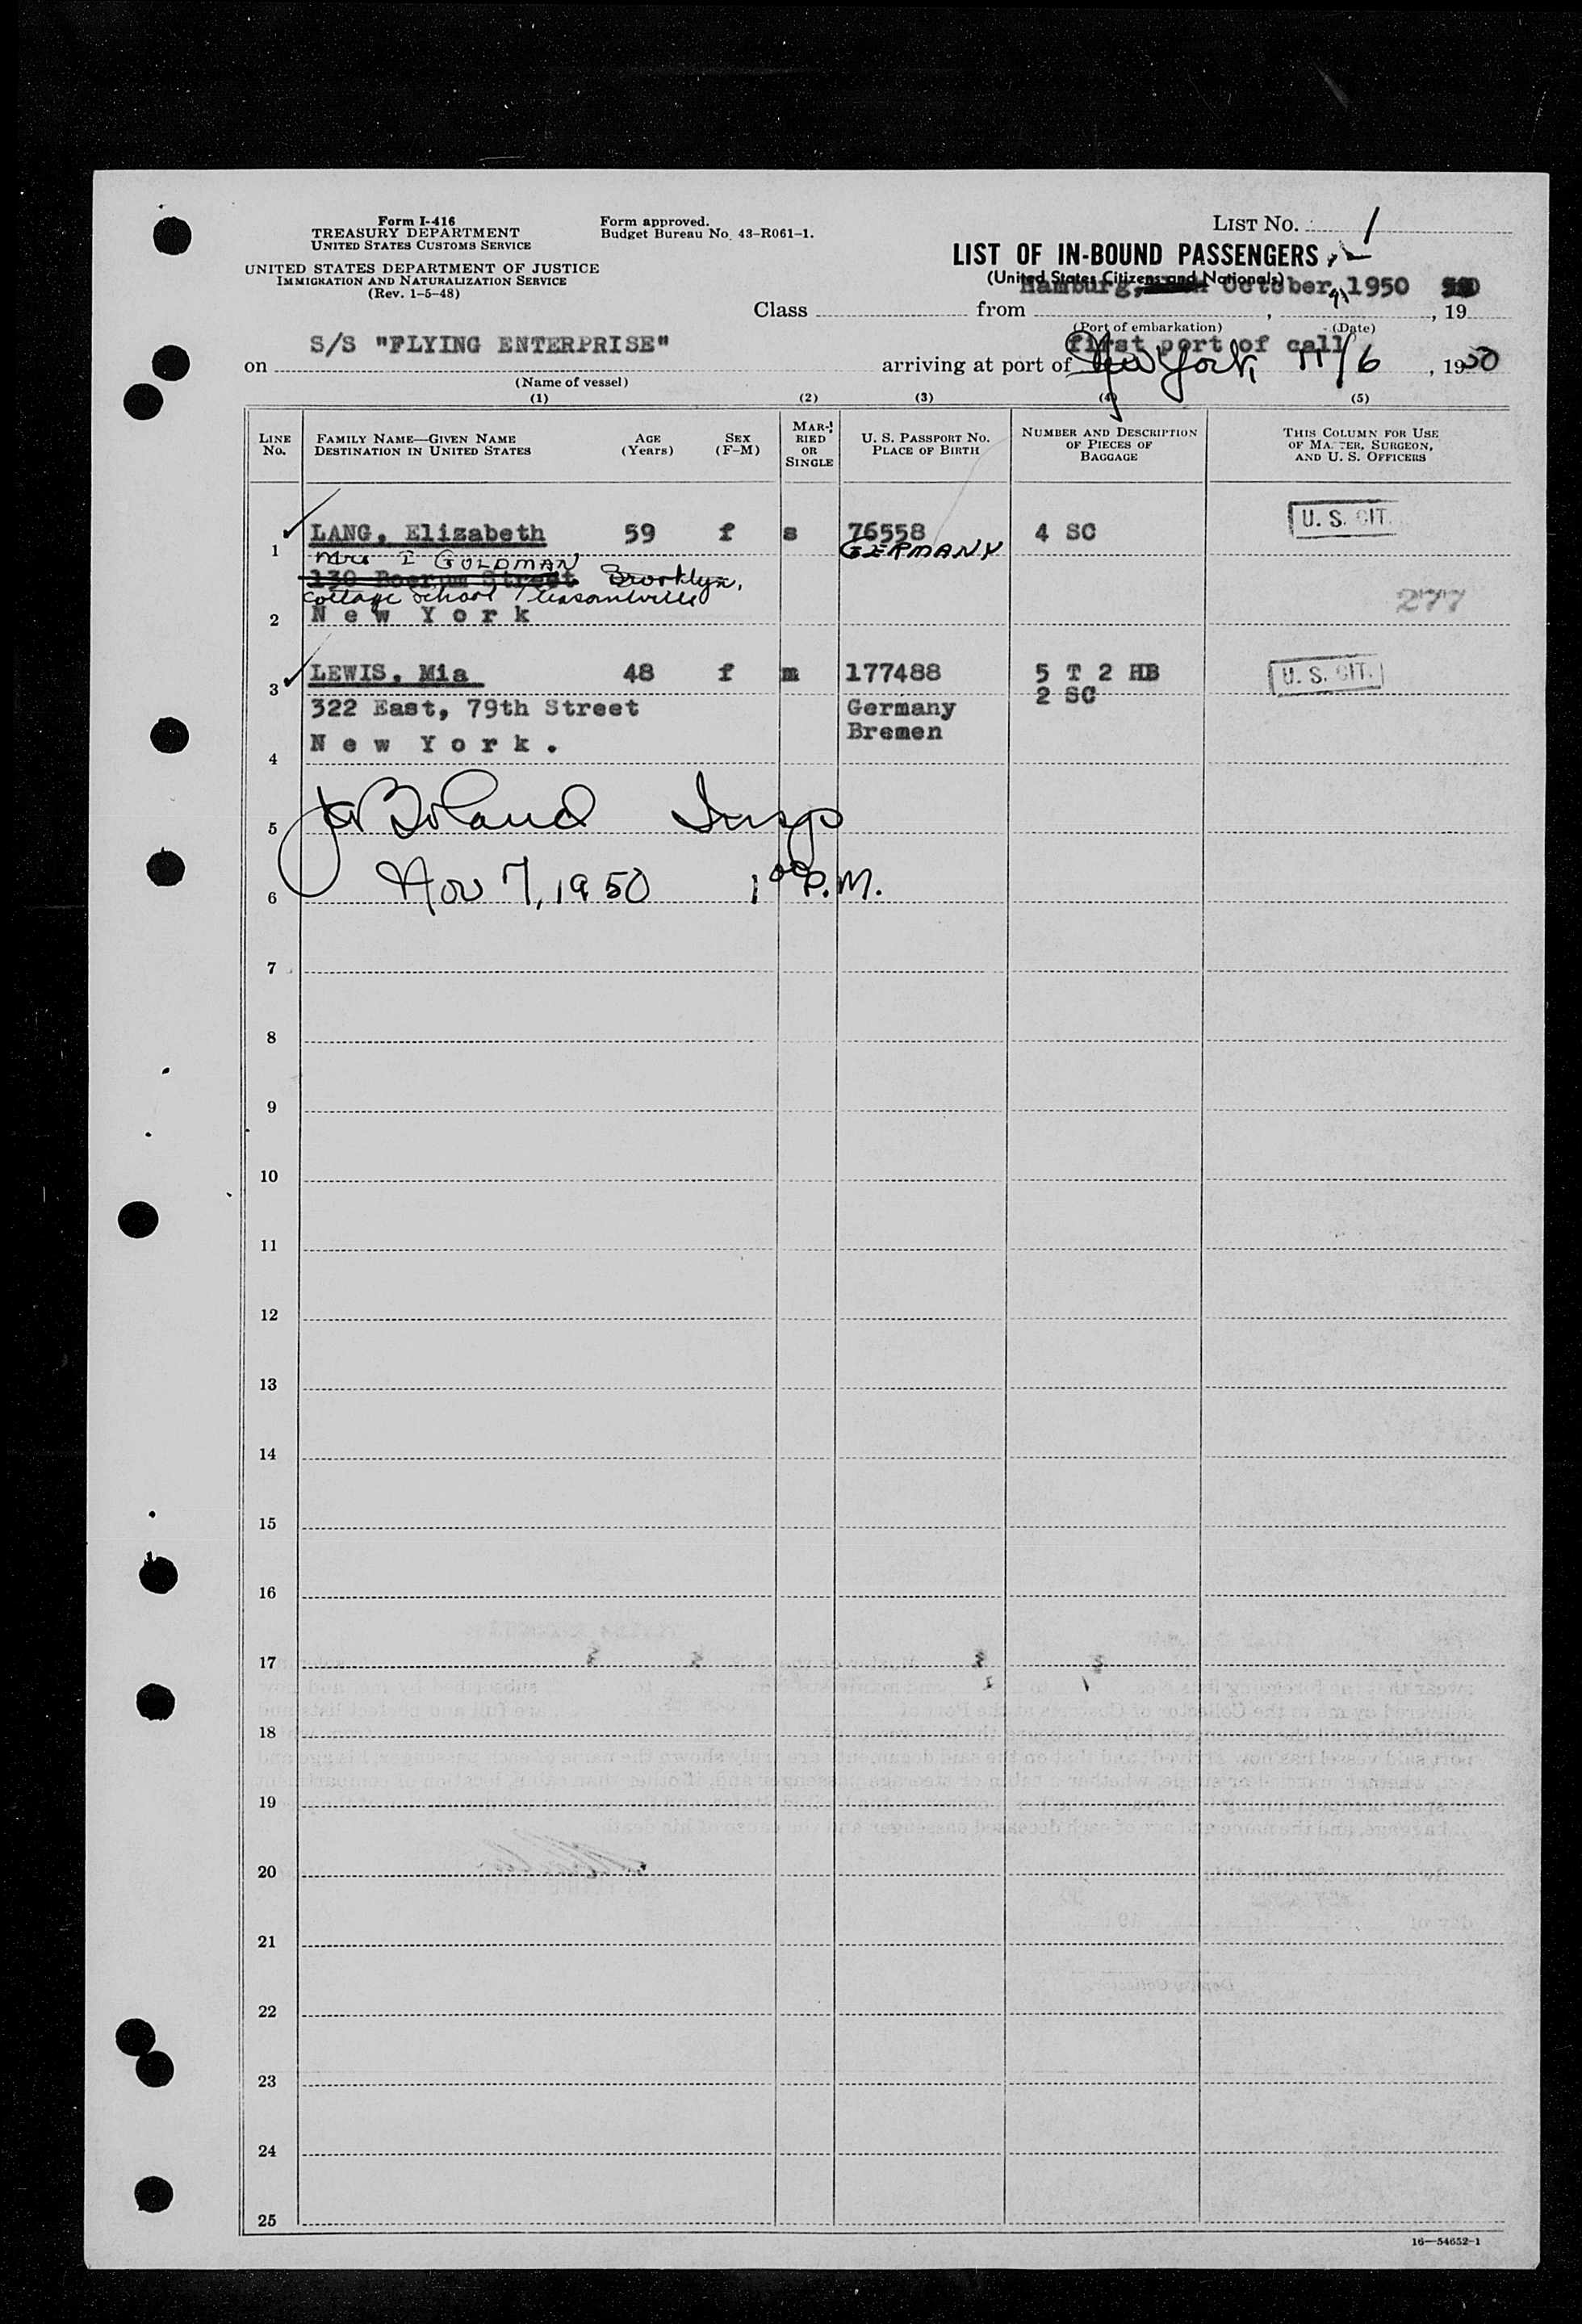 Form I-416
TREASURY DEPARTMENT
UNITED STATES CUSTOMS SERVICE
UNITED STATES DEPARTMENT OF JUSTICE
IMMIGRATION AND NATURALIZATION SERVICE
(Rev. 1-5-48)
Form approved.
Budget Bureau No. 43-R061-1.
LIST NO. 1
LIST OF IN-BOUND PASSENGERS
(United States Citizens and Nationals)
Class from Hamburg, October, 1950, 19
(Port of embarkation) (Date)
first port of call
on S/S "FLYING ENTERPRISE" arriving at port of New York, 11/6, 1950
(Name of vessel)
(1) (2) (3) (4) (5)
LINE NO. FAMILY NAME—GIVEN NAME DESTINATION IN UNITED STATES AGE (Years) SEX (F-M) MARRIED OR SINGLE U. S. PASSPORT NO. PLACE OF BIRTH NUMBER AND DESCRIPTION OF PIECES OF BAGGAGE THIS COLUMN FOR USE OF MASTER, SURGEON, AND U. S. OFFICERS
1 LANG, Elizabeth 59 f s 76558 4 SC U. S. CIT.
GERMANY
Mrs I GOLDMAN
130 Boerum Street Brooklyn,
Cottage School Pleasantville
2 New York 277
3 LEWIS, Mia 48 f m 177488 5 T 2 HB U. S. CIT.
2 SC
322 East, 79th Street Germany
Bremen
4 New York.
5 Boland Insp
6 Nov 7, 1950 1 00 P.M.
7
8
9
10
11
12
13
14
15
16
17
18
19
20
21
22
23
24
25
16—54652-1